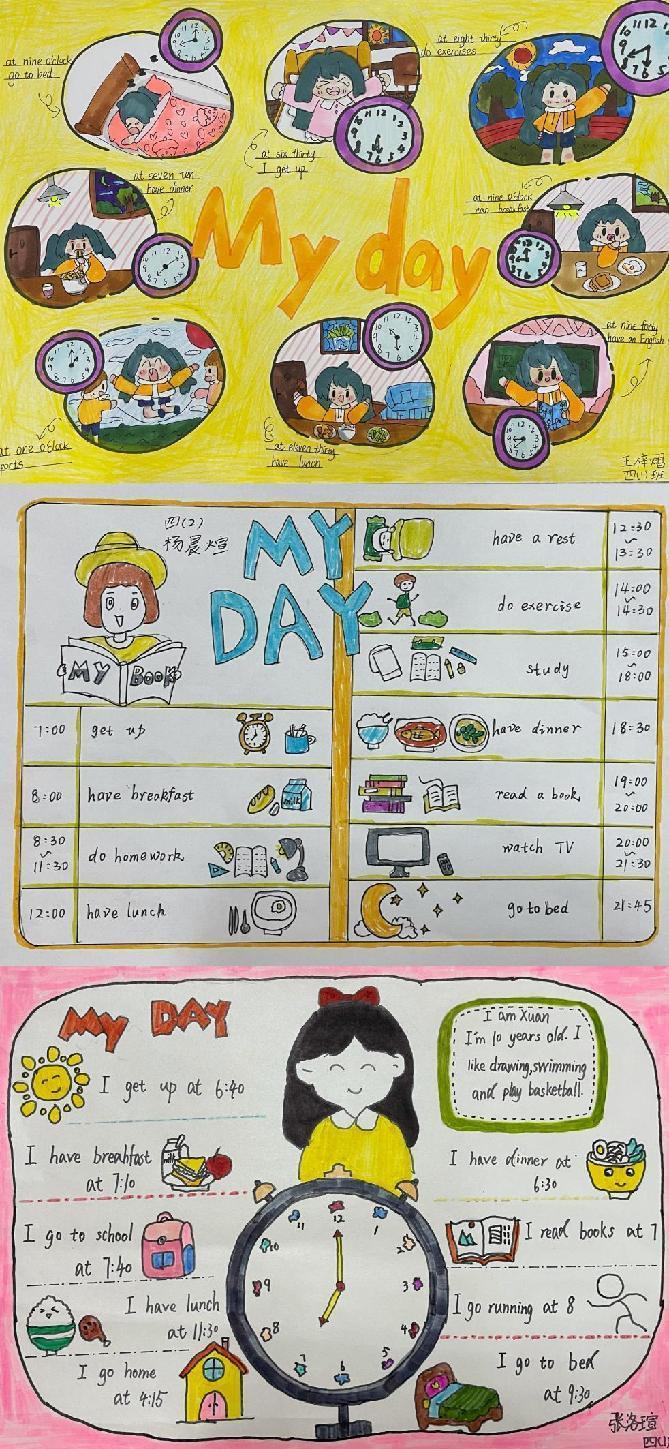 at nine o'clock
go to bed
at eight thirty
do exercises
at six thirty
I get up
at seven ten
have dinner
at nine o'clock
breakfast
My day
at nine forty
have an English
at one o'clock
ports
at eleven thirty
have lunch
四(2)
杨晨煊
MY
DAY
MY BOOK
1:00 get up
8:00 have breakfast
milk
8:30
~
11:30
do homework
12:00 have lunch
have a rest
12:30
~
13:30
do exercise
14:00
~
14:30
study
15:00
~
18:00
have dinner 18:30
read a book
19:00
~
20:00
watch TV
20:00
~
21:30
go to bed 21:45
MY DAY
I get up at 6:40
I have breakfast
at 7:10
milk
I go to school
at 7:40
I have lunch
at 11:30
I go home
at 4:15
I am Xuan
I'm 10 years old. I
like drawing,swimming
and play basketball.
I have dinner at
6:30
I read books at 7
I go running at 8
I go to bed
at 9:30
12
1
2
3
4
5
6
7
8
9
10
11
张洛瑄